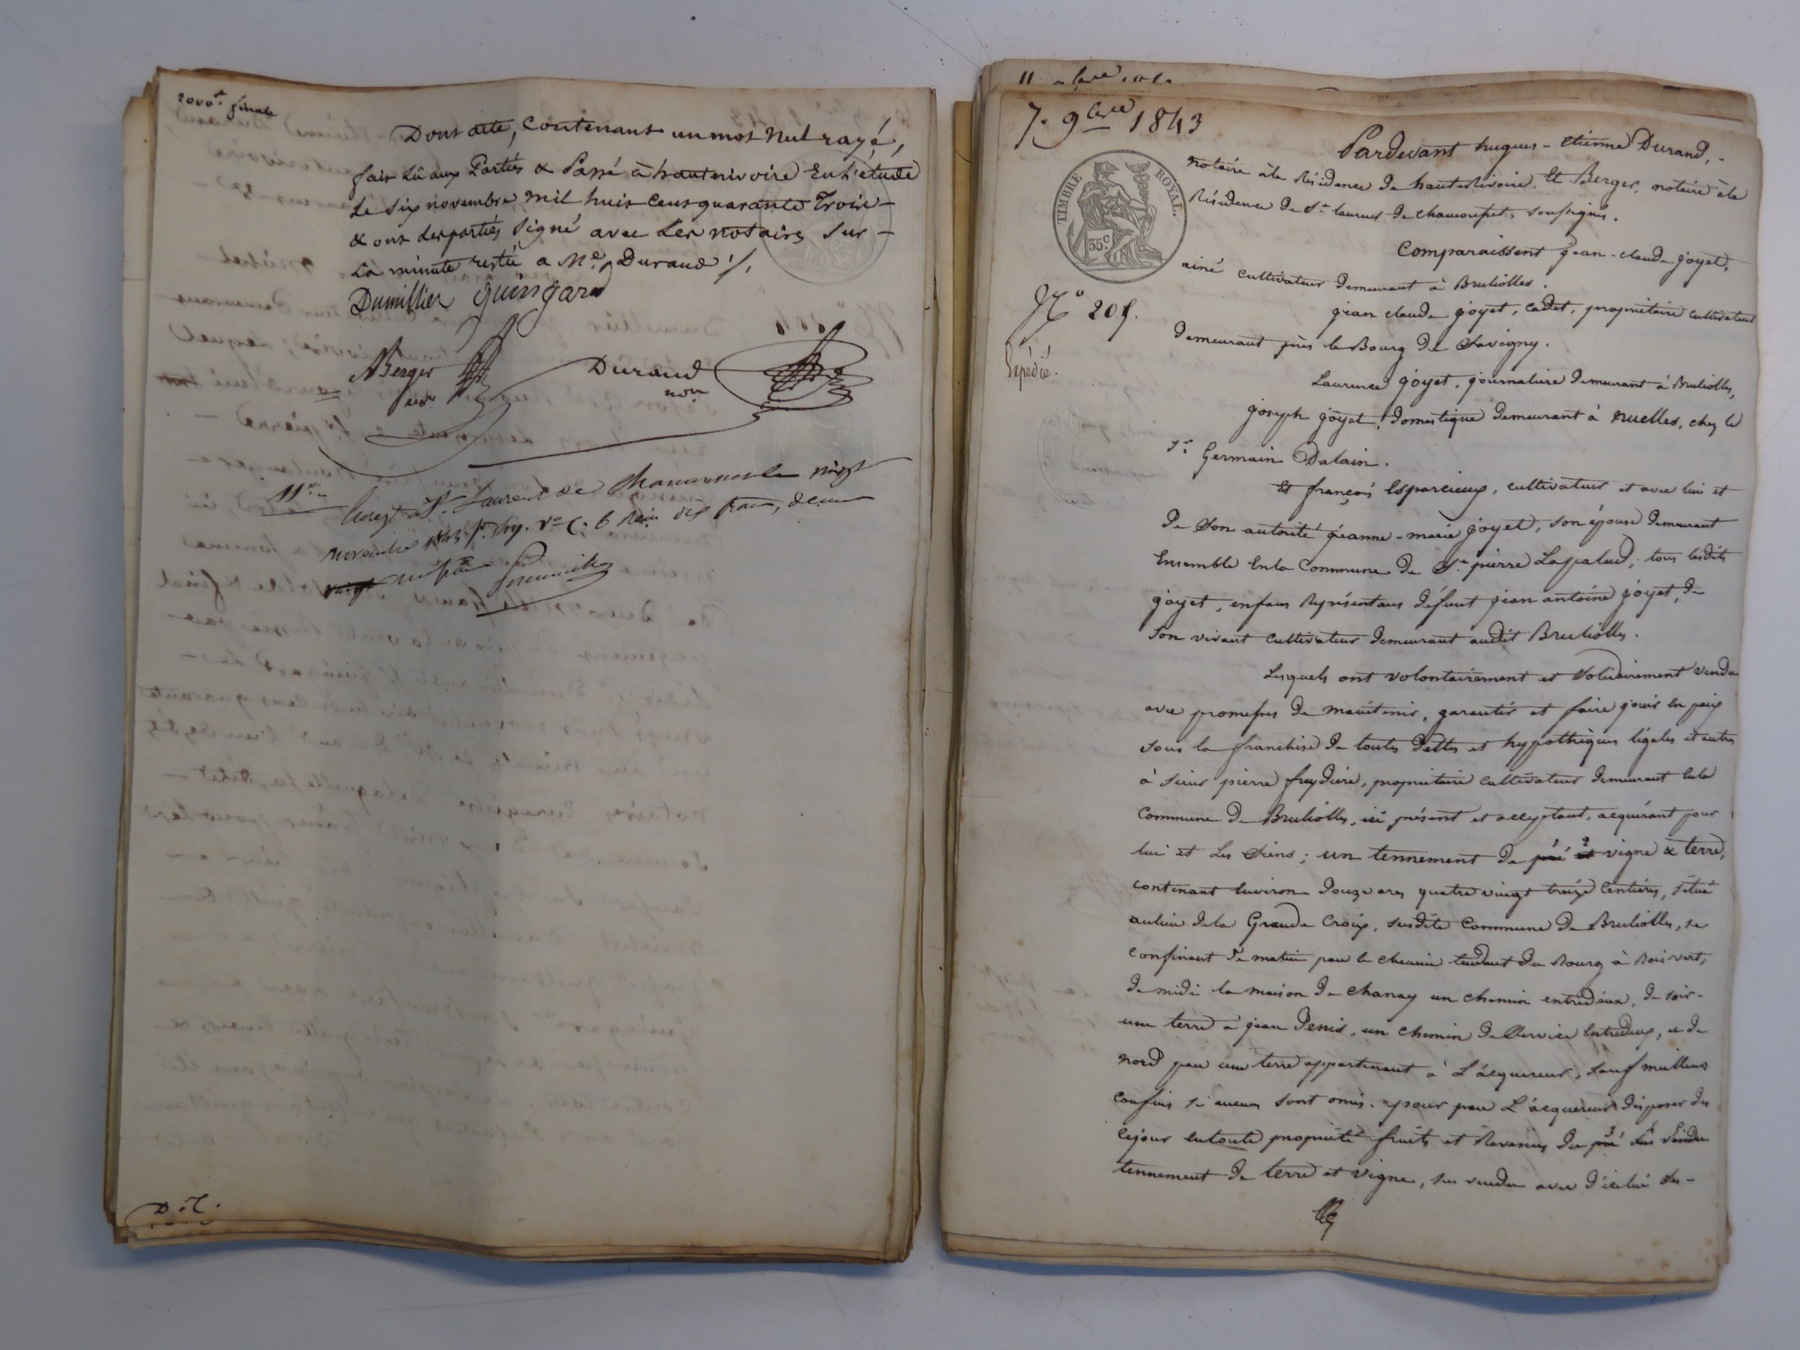 2000f finale
Dont acte, Contenant un mot nul rayé,
fait Lû aux Parties & Passé à hauterivoire En L'étude
Le Six novembre mil huit Cent quarante Trois
& ont Les parties Signé avec Les notaires Sur
La minute restée a Me. Durand ./.
Dumillier Guingard
ABerger
Durand
not
St. Laurent de Chamousset vingt
novembre 1843 fo. Vo. C. 6 Reçu dix francs, décime
un franc
D. C.
7. 9bre 1843
Pardevant hugues-Etienne Durand,
notaire à la Résidence de hauteRivoire, Et Berger, notaire à la
Résidence de St. Laurent de chamousset, soussignés.
TIMBRE ROYAL.
35 c
Comparaissent Jean-claude Goyet,
ainé cultivateur demeurant à Brullioles.
No 205.
Jean claude Goyet, Cadet, propriétaire cultivateur
demeurant près le Bourg de Savigny.
Expédié.
Laurence Goyet, journalière demeurant à Brullioles,
Joseph Goyet, domestique demeurant à nuelles, chez le
Sr. Germain Dalain.
Et françois Esparcieux, cultivateur et avec lui et
de Son autorité Jeanne-marie Goyet, Son épouse demeurant
Ensemble En la Commune de St. pierre Lapalud; tous lesdits
Goyet, enfans Représentans defunt Jean antoine Goyet, de
Son vivant cultivateur demeurant audit Brullioles.
Lesquels ont volontairement et Solidairement vendu
avec promesses de maintenir, garantir et faire jouir En paix
Sous la franchise de toutes dettes et hyppothèques légales et autres
à Sieur pierre freydière, propriétaire cultivateur demeurant En la
Commune de Brullioles, ici présent et acceptant, acquérant pour
lui et Les Siens; un tennement de pré et vigne & terre,
contenant Environ Douze ares quatre vingt treize Centiares, Situé
au lieu de la Grande Croix, susdite Commune de Brullioles, se
confinant de matin par le chemin tendant du Bourg à Boisvert,
de midi la maison de chanay un chemin entredeux, de soir
une terre à Jean Denis, un chemin de Service Entredeux, et de
nord par une terre appartenant à L'acquéreur, Sauf meilleurs
confins si aucuns sont omis. pour par L'acquéreur disposer dès
cejour En toute propriété fruits et Revenus du pré sus vendu
tennement de terre et vigne,